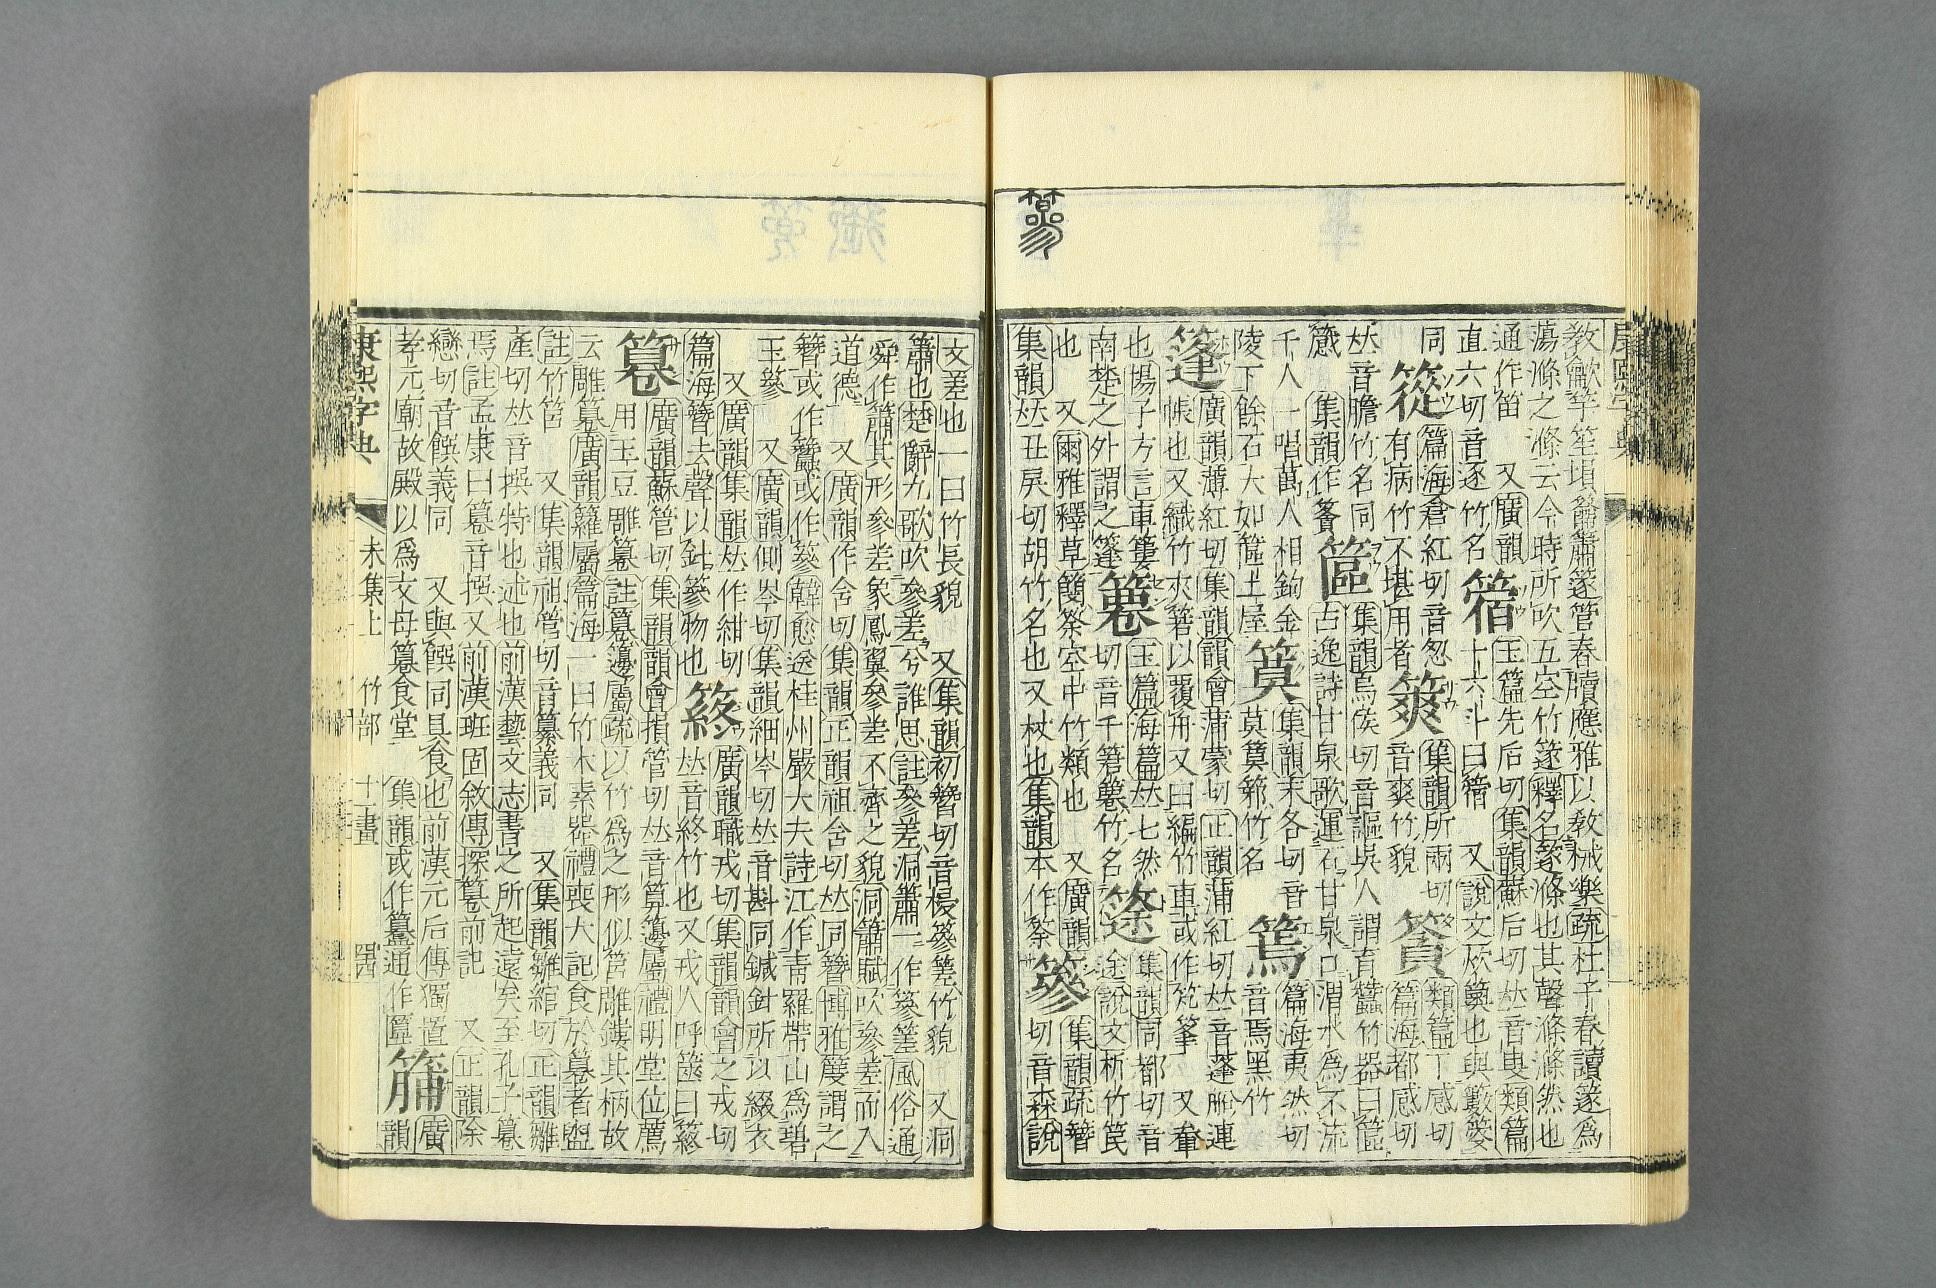 教龡竽笙塤籥簫篴管舂牘應雅以敎祴樂疏杜子春讀篴爲
蕩滌之滌云今時所吹五空竹篴釋名篴滌也其聲滌滌然也
通作笛 又廣韻
直六切音逐竹名
玉篇先后切集韻蘇后切𠀤音叟類篇
十六斗曰 又說文炊䉛也與籔䉤
同
篵
篇海倉紅切音怱
有病竹不堪用者
集韻所兩切
音爽竹貌
類篇丁感切
篇海都感切
𠀤音膽竹名同
集韻作
集韻烏侯切音謳吳人謂育蠶竹器曰
古逸詩甘泉歌運石甘泉口渭水爲不流
千人一唱萬人相鉤金
陵下餘石大如土屋
集韻末各切音
莫竹名
篶
篇海夷然切
音焉黑竹
篷
廣韻薄紅切集韻韻會蒲蒙切正韻蒲紅切𠀤音蓬船連
帳也又織竹夾以覆舟又曰編竹車或作 又軬
也揚子方言車簍
南楚之外謂之篷
玉篇海篇𠀤七然
切音千竹名
筡
集韻同都切音
途說文析竹笢
也 又爾雅釋草簢筡空中竹類也 又廣韻
集韻𠀤丑戾切胡竹名也又杖也集韻本作筡
篸
集韻疏簪
切音森說
篸
文差也一曰竹長貌 又集韻初簪切音梫篸差竹貌 又洞
簫也楚辭九歌吹參差兮誰思註參差洞簫一作篸差風俗通
舜作簫其形參差象鳳翼參差不齊之貌洞簫賦吹參差而入
道德 又廣韻作含切集韻正韻祖含切𠀤同簪博雅篸謂之
簪或作蠶或作篸韓愈送桂州嚴大夫詩江作靑羅帶山爲碧
玉篸 又廣韻側岑切集韻緇岑切𠀤音斟同鍼針所以綴衣
又廣韻集韻𠀤作紺切
篇海簪去聲以針篸物也
終
廣韻職戎切集韻韻會之戎切
𠀤音終竹也又戎人呼篋曰
篹
廣韻蘇管切集韻韻會損管切𠀤音算籩屬禮明堂位薦
用玉豆雕篹註篹籩屬疏以竹爲之形似筥雕鏤其柄故
云雕篹廣韻籮屬篇海一曰竹木素器禮喪大記食於篹者盥
註竹筥 又集韻祖管切音纂義同 又集韻雛綰切正韻雛
產切𠀤音撰特也述也前漢藝文志書之所起遠矣至孔子篹
焉註孟康曰篹音撰又前漢班固敘傳探篹前記 又正韻除
戀切音饌義同 又與饌同具食也前漢元后傳獨置
孝元廟故殿以爲文母篹食堂 集韻或作籑通作匴
廣
韻
康熙字典
未集上 竹部 十一畫